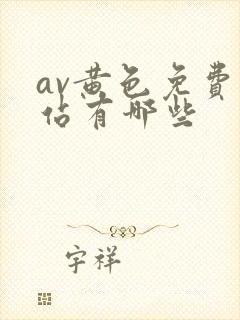 av黄色免費
佔有哪些
宇祥